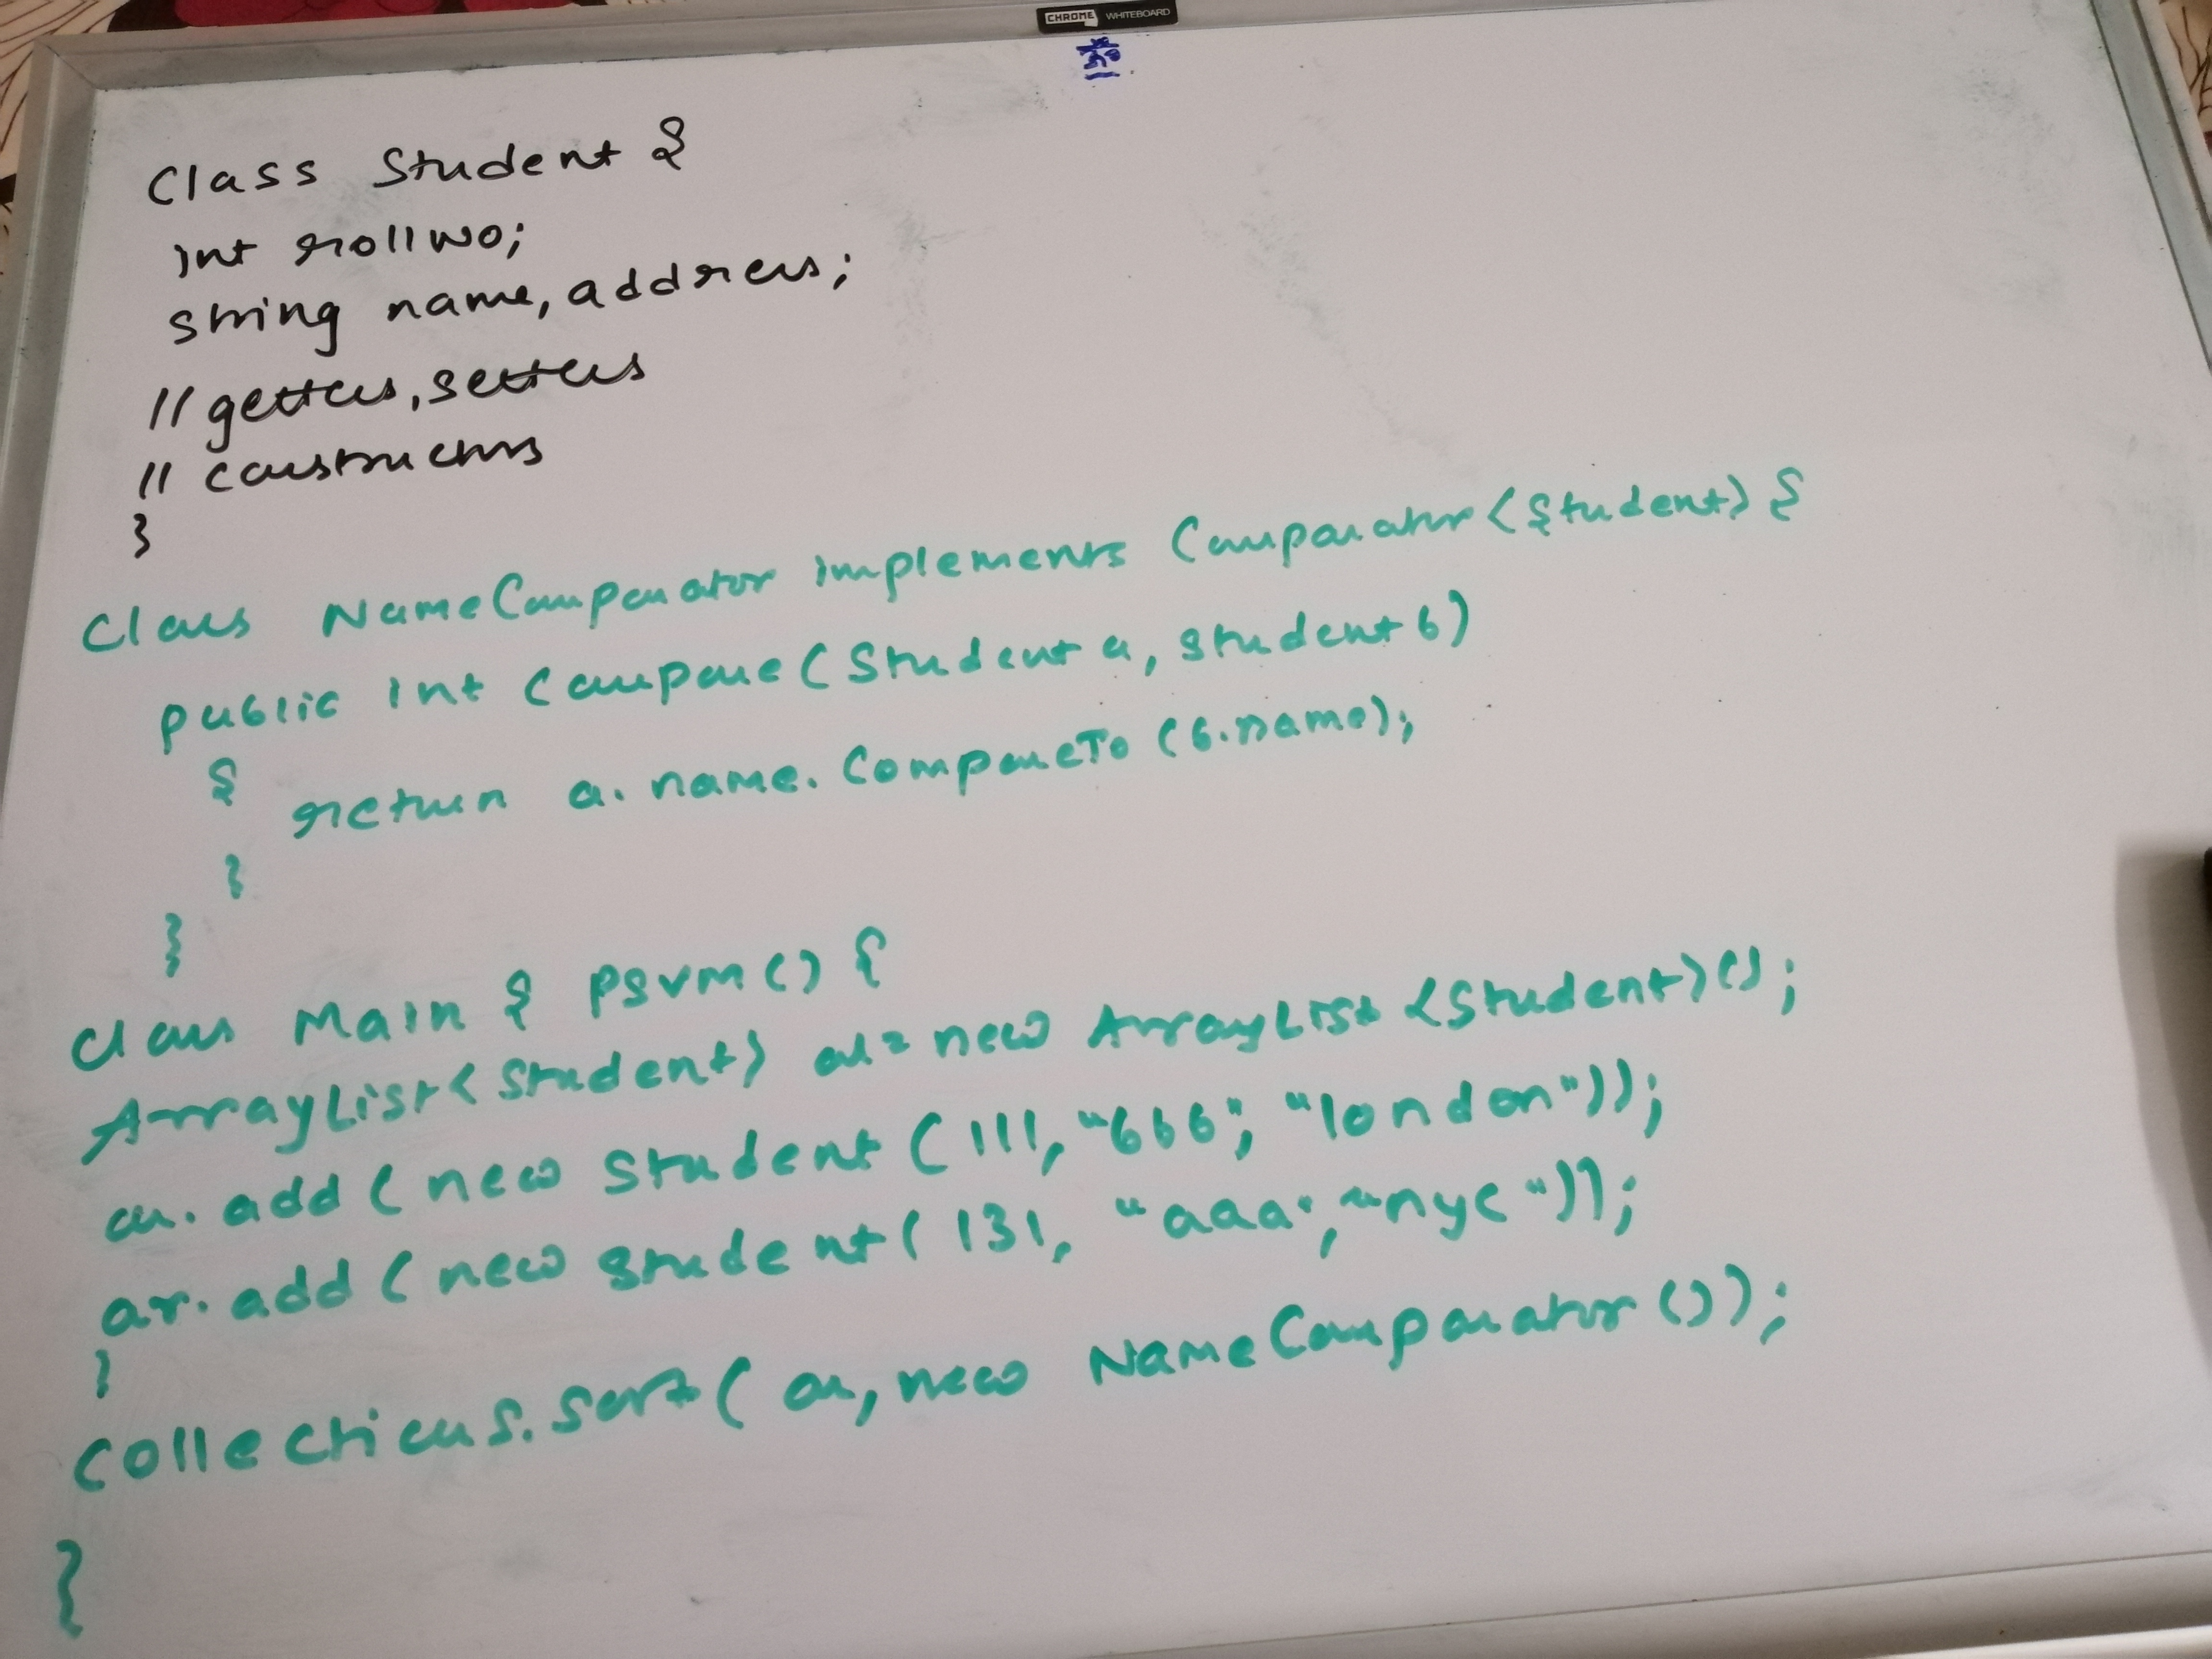 CHROME WHITEBOARD
Class Student {
int rollNo;
string name, address;
// getters, setters
// constructors
}
Class NameComparator implements Comparator<Student> {
public int compare(Student a, Student b)
{ return a.name.CompareTo(b.name);
}
}
class Main { psvm() {
ArrayList<Student> ar = new ArrayList<Student>();
ar.add(new Student(111, "bbb", "london"));
ar.add(new Student(131, "aaa", "nyc"));
}
Collections.sort(ar, new NameComparator());
}